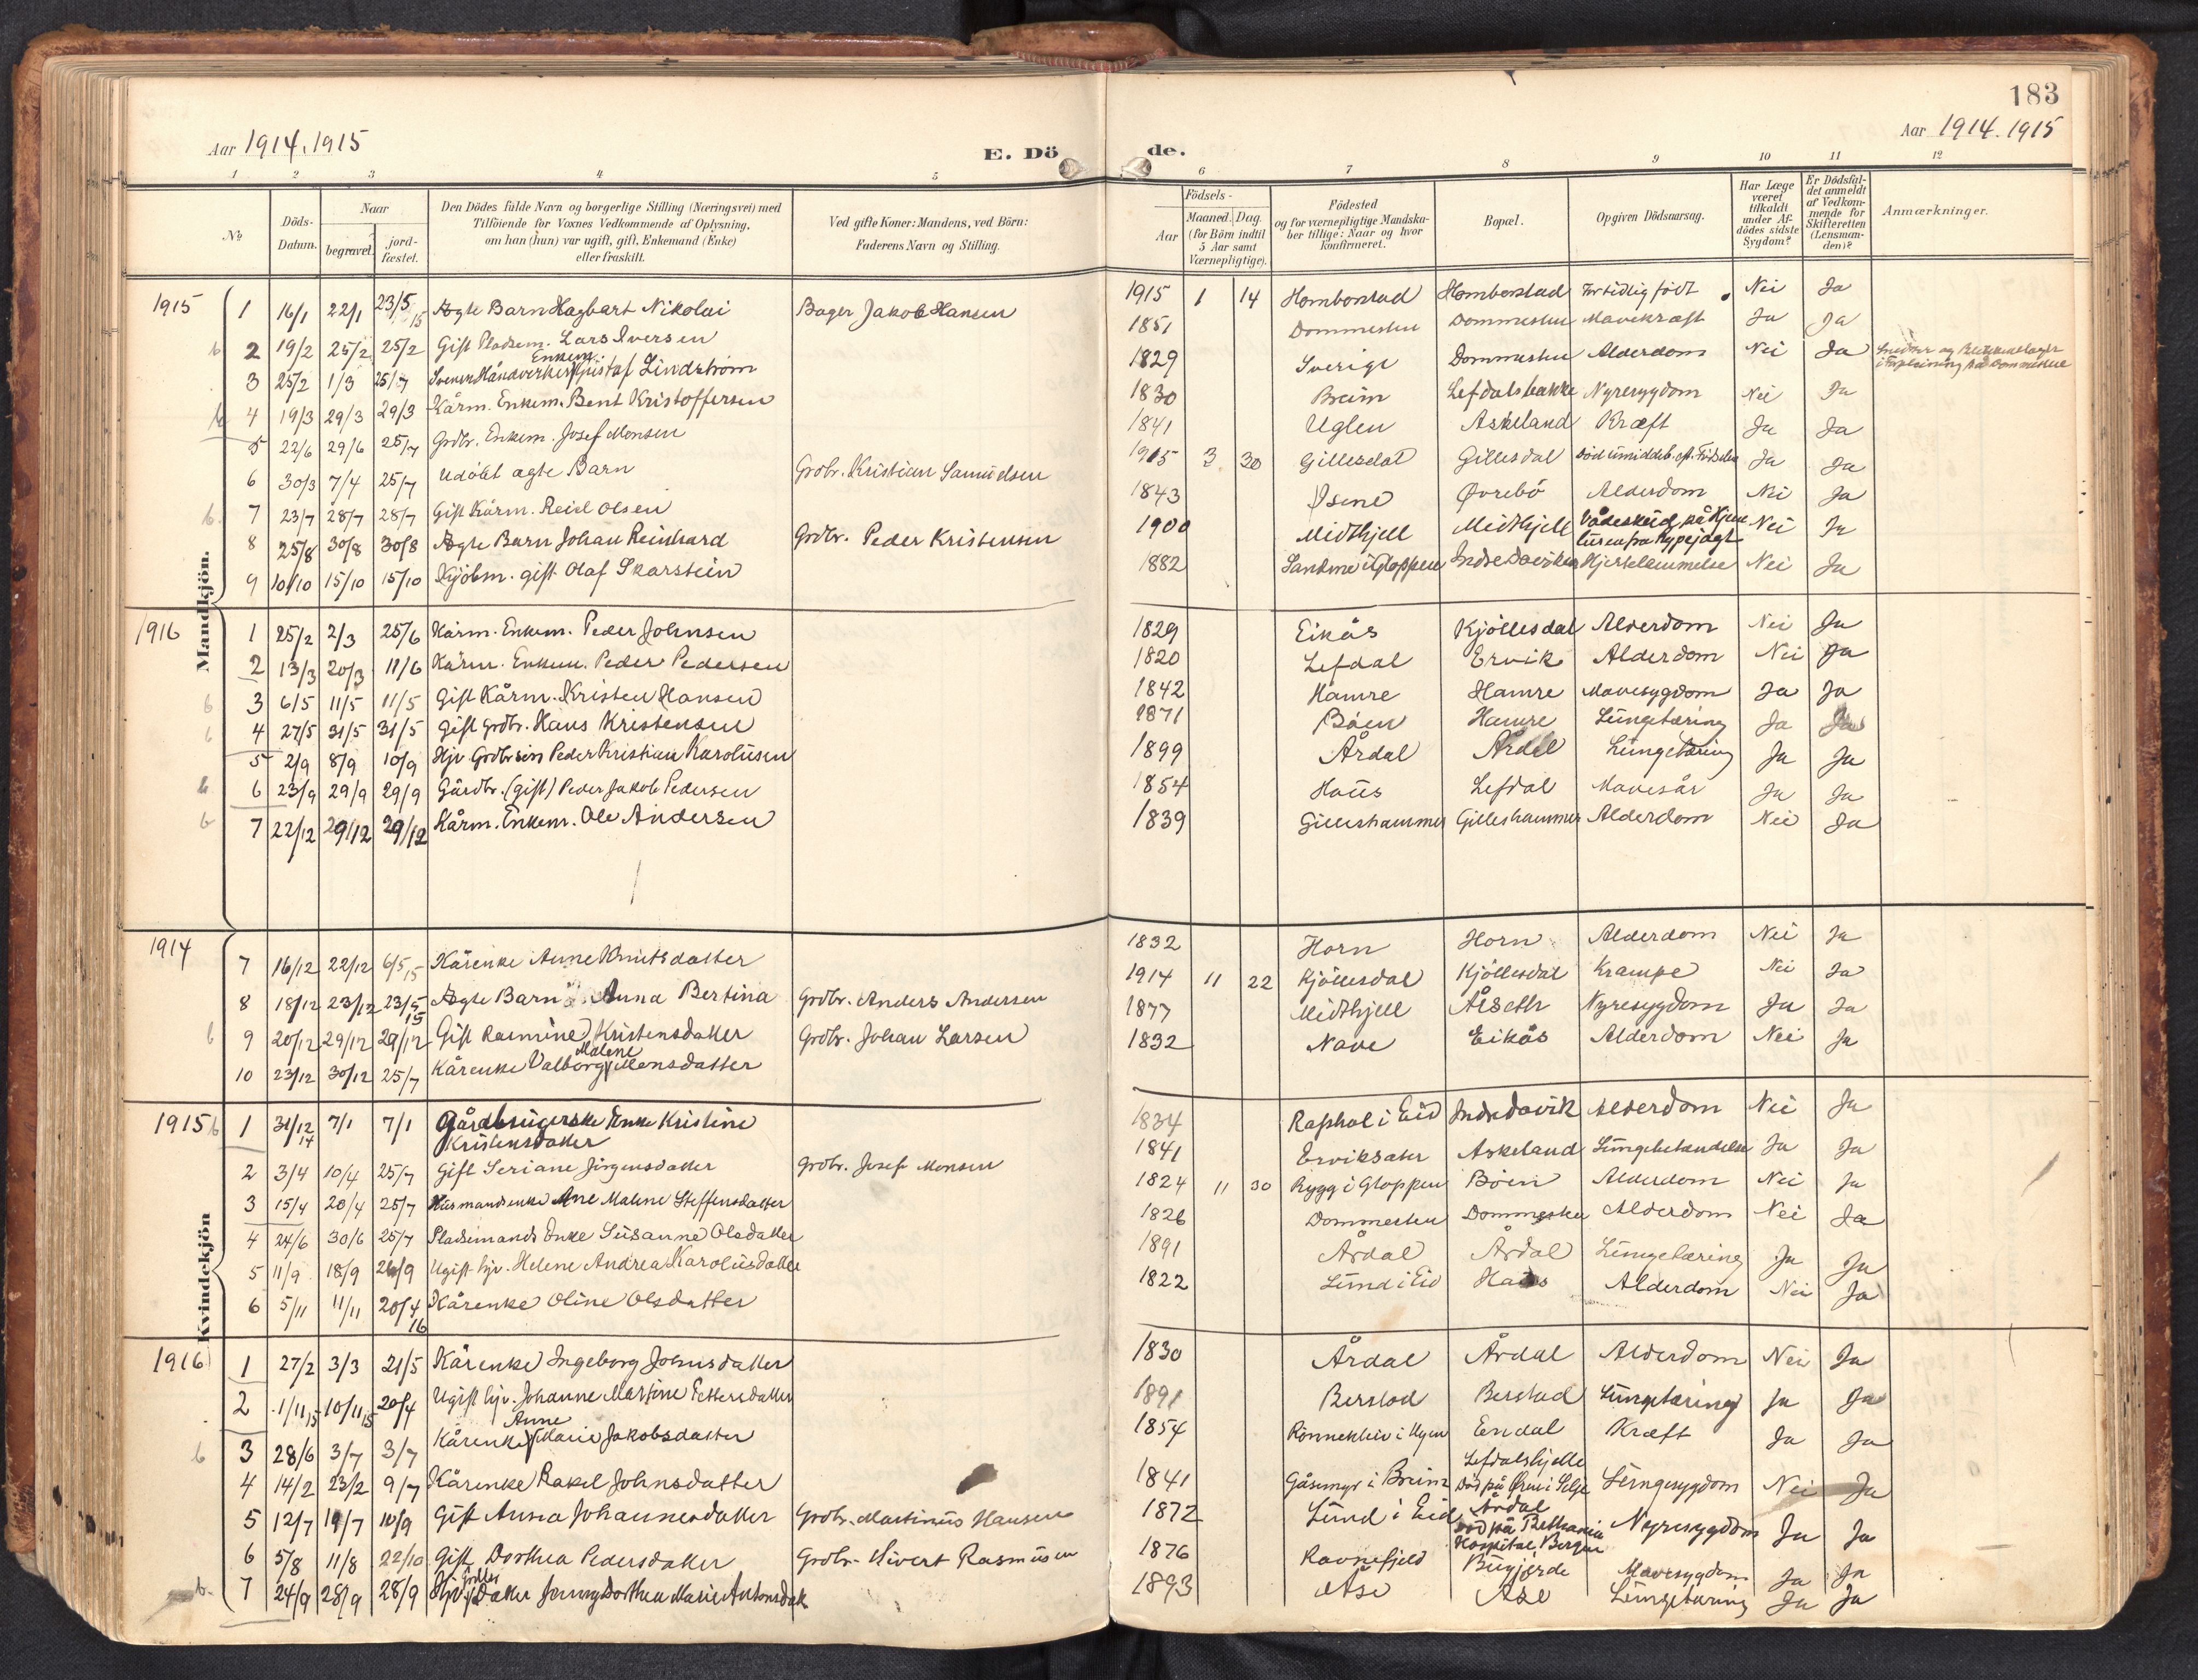 183
Aar 1914.1915
E. Dö
de.
Aar 1914.1915
1 2 3 4 5 6 7 8 9 10 11 12
No
Döds-Datum.
Naar
begravet.
jord-fæstet.
Den Dödes fulde Navn og borgerlige Stilling (Næringsvei) med
Tilföiende for Voxnes Vedkommende af Oplysning,
om han (hun) var ugift, gift, Enkemand (Enke)
eller fraskilt.
Ved gifte Koner: Mandens, ved Börn:
Faderens Navn og Stilling.
Födsels-
Aar
Maaned. Dag.
(for Börn indtil
5 Aar samt
Værnepligtige).
Födested
og for værnepligtige Mandska-
ber tillige: Naar og hvor
konfirmeret.
Bopæl.
Opgiven Dödsaarsag.
Har Læge
været
tilkaldt
under Af-
dödes sidste
Sygdom?
Er Dödsfal-
det anmeldt
af Vedkom-
mende for
Skifteretten
(Lensman-
den)?
Anmærkninger.
Mandkjön.
1915
1 16/1 22/1 23/5 15 Ægte Barn Hagbart Nikolai Bager Jakob Hansen 1915 1 14 Hombornstad Hombornstad For tidlig født Nei Ja
b 2 19/2 25/2 25/2 Gift Pladsm. Lars Iversen 1851 Dommesten Dommesten Mavekræft Ja Ja
3 25/2 1/3 25/7 Svensk Håndverker Enkem. Gustaf Lindström 1829 Sverige Dommesten Alderdom Nei Ja
b 4 19/3 29/3 29/3 Kårm. Enkem. Bent Kristoffersen 1830 Breim Lefdalsbakke Nyresygdom Nei Ja
5 22/6 29/6 25/7 Grdbr. Enkem. Josef Monsen 1841 Uglen Askeland Kræft Ja Ja
6 30/3 7/4 25/7 Udöbt ægte Barn Grdbr. Kristian Samuelsen 1915 3 30 Gillesdal Gillesdal Död umiddelb. eft. Födselen Ja Ja
b. 7 23/7 28/7 28/7 Gift Kårm. Reiel Olsen 1843 Isene Øvrebö Alderdom Nei Ja
8 25/8 30/8 30/8 Ægte Barn Johan Reinhard Grdbr. Peder Kristensen 1900 Midthjell Midthjell Vådeskud på Hjem
turen fra Rypejagt Nei Ja
9 10/10 15/10 15/10 Kjöbm. gift Olaf Skarstein 1882 Sandene i Gloppen Indre Daviken Hjertelammelse Nei Ja
1916
1 25/2 2/3 25/6 Kårm. Enkem. Peder Johnsen 1829 Eikås Kjöllesdal Alderdom Nei Ja
2 13/3 20/3 11/6 Kårm. Enkem. Peder Pedersen 1820 Lefdal Ervik Alderdom Nei Ja
b 3 6/5 11/5 11/5 Gift Kårm. Kristen Hansen 1842 Hamre Hamre Mavesygdom Ja Ja
b 4 27/5 31/5 31/5 Gift Grdbr. Hans Kristensen 1871 Böen Hamre Lungetæring Ja Ja
5 2/9 8/9 10/9 Hjv. Grdbr sön Peder Kristian Karolusen 1899 Årdal Årdal Lungetæring Ja Ja
b 6 23/9 29/9 29/9 Gårdbr. (gift) Peder Jakob Pedersen 1854 Haus Lefdal Mavesår Ja Ja
b 7 22/12 29/12 29/12 Kårm. Enkem. Ole Andersen 1839 Gilleshammer Gilleshammer Alderdom Nei Ja
Kvindekjön
1914
7 16/12 22/12 6/5 15 Kårenke Anne Knutsdatter 1832 Horn Horn Alderdom Nei Ja
8 18/12 23/12 23/5 15 Ægte Barn Anna Bertina Grdbr. Anders Andersen 1914 11 22 Kjöllesdal Kjöllesdal Krampe Nei Ja
b 9 20/12 29/12 29/12 Gift Rasmine Kristensdatter Grdbr. Johan Larsen 1877 Midthjell Ålseth Nyresygdom Ja Ja
10 23/12 30/12 25/7 Kårenke Valborg Malene Monsdatter 1832 Nave Eikås Alderdom Nei Ja
1915
b 1 31/12 14 7/1 7/1 Gårdbrugerske Enke Kristine
Kristensdatter 1834 Raphol i Eid Indre Davik Alderdom Nei Ja
2 3/4 10/4 25/7 Gift Seriane Jörgensdatter Grdbr. Josef Monsen 1841 Erviksæter Askeland Lungebetændelse Ja Ja
3 15/4 20/4 25/7 Husmandsenke Ane Malene Steffensdatter 1824 11 30 Rygg i Gloppen Böen Alderdom Nei Ja
4 24/6 30/6 25/7 Pladsemands Enke Susanne Olsdatter 1826 Dommesten Dommesten Alderdom Nei Ja
5 11/9 18/9 26/9 Ugift hjv. Helene Andrea Karolusdatter 1891 Årdal Årdal Lungetæring Ja Ja
6 5/11 11/11 20/4 16 Kårenke Oline Olsdatter 1822 Lund i Eid Haus Alderdom Nei Ja
1916
1 27/2 3/3 21/5 Kårenke Ingeborg Johnsdatter 1830 Årdal Årdal Alderdom Nei Ja
2 1/11 15 10/11 15 20/4 Ugift hjv. Johanne Martine Pettersdatter 1891 Berstad Berstad Lungetæring Ja Ja
b 3 28/6 3/7 3/7 Kårenke Anne Marie Jakobsdatter 1854 Rönneklev i Ugen Endal Kræft Ja Ja
4 14/2 23/2 9/7 Kårenke Rakel Johnsdatter 1841 Gåsemyr i Breim Lefdalshjelle
Död på Øren i Selje Lungesygdom Nei Ja
5 12/7 19/7 10/9 Gift Anna Johannesdatter Grdbr. Martinus Hansen 1872 Lund i Eid Årdal
död på Bethania
Hospital, Bergen Nyresygdom Ja Ja
6 5/8 11/8 22/10 Gift Dorthea Pedersdatter Grdbr. Sivert Rasmusen 1876 Ravnefjeld Bugjerde Mavesygdom Ja Ja
b. 7 24/9 28/9 28/9 Hjv. datter Jenny Dorthea Marie Antonsdatt 1893 Åse Åse Lungetæring Ja Ja